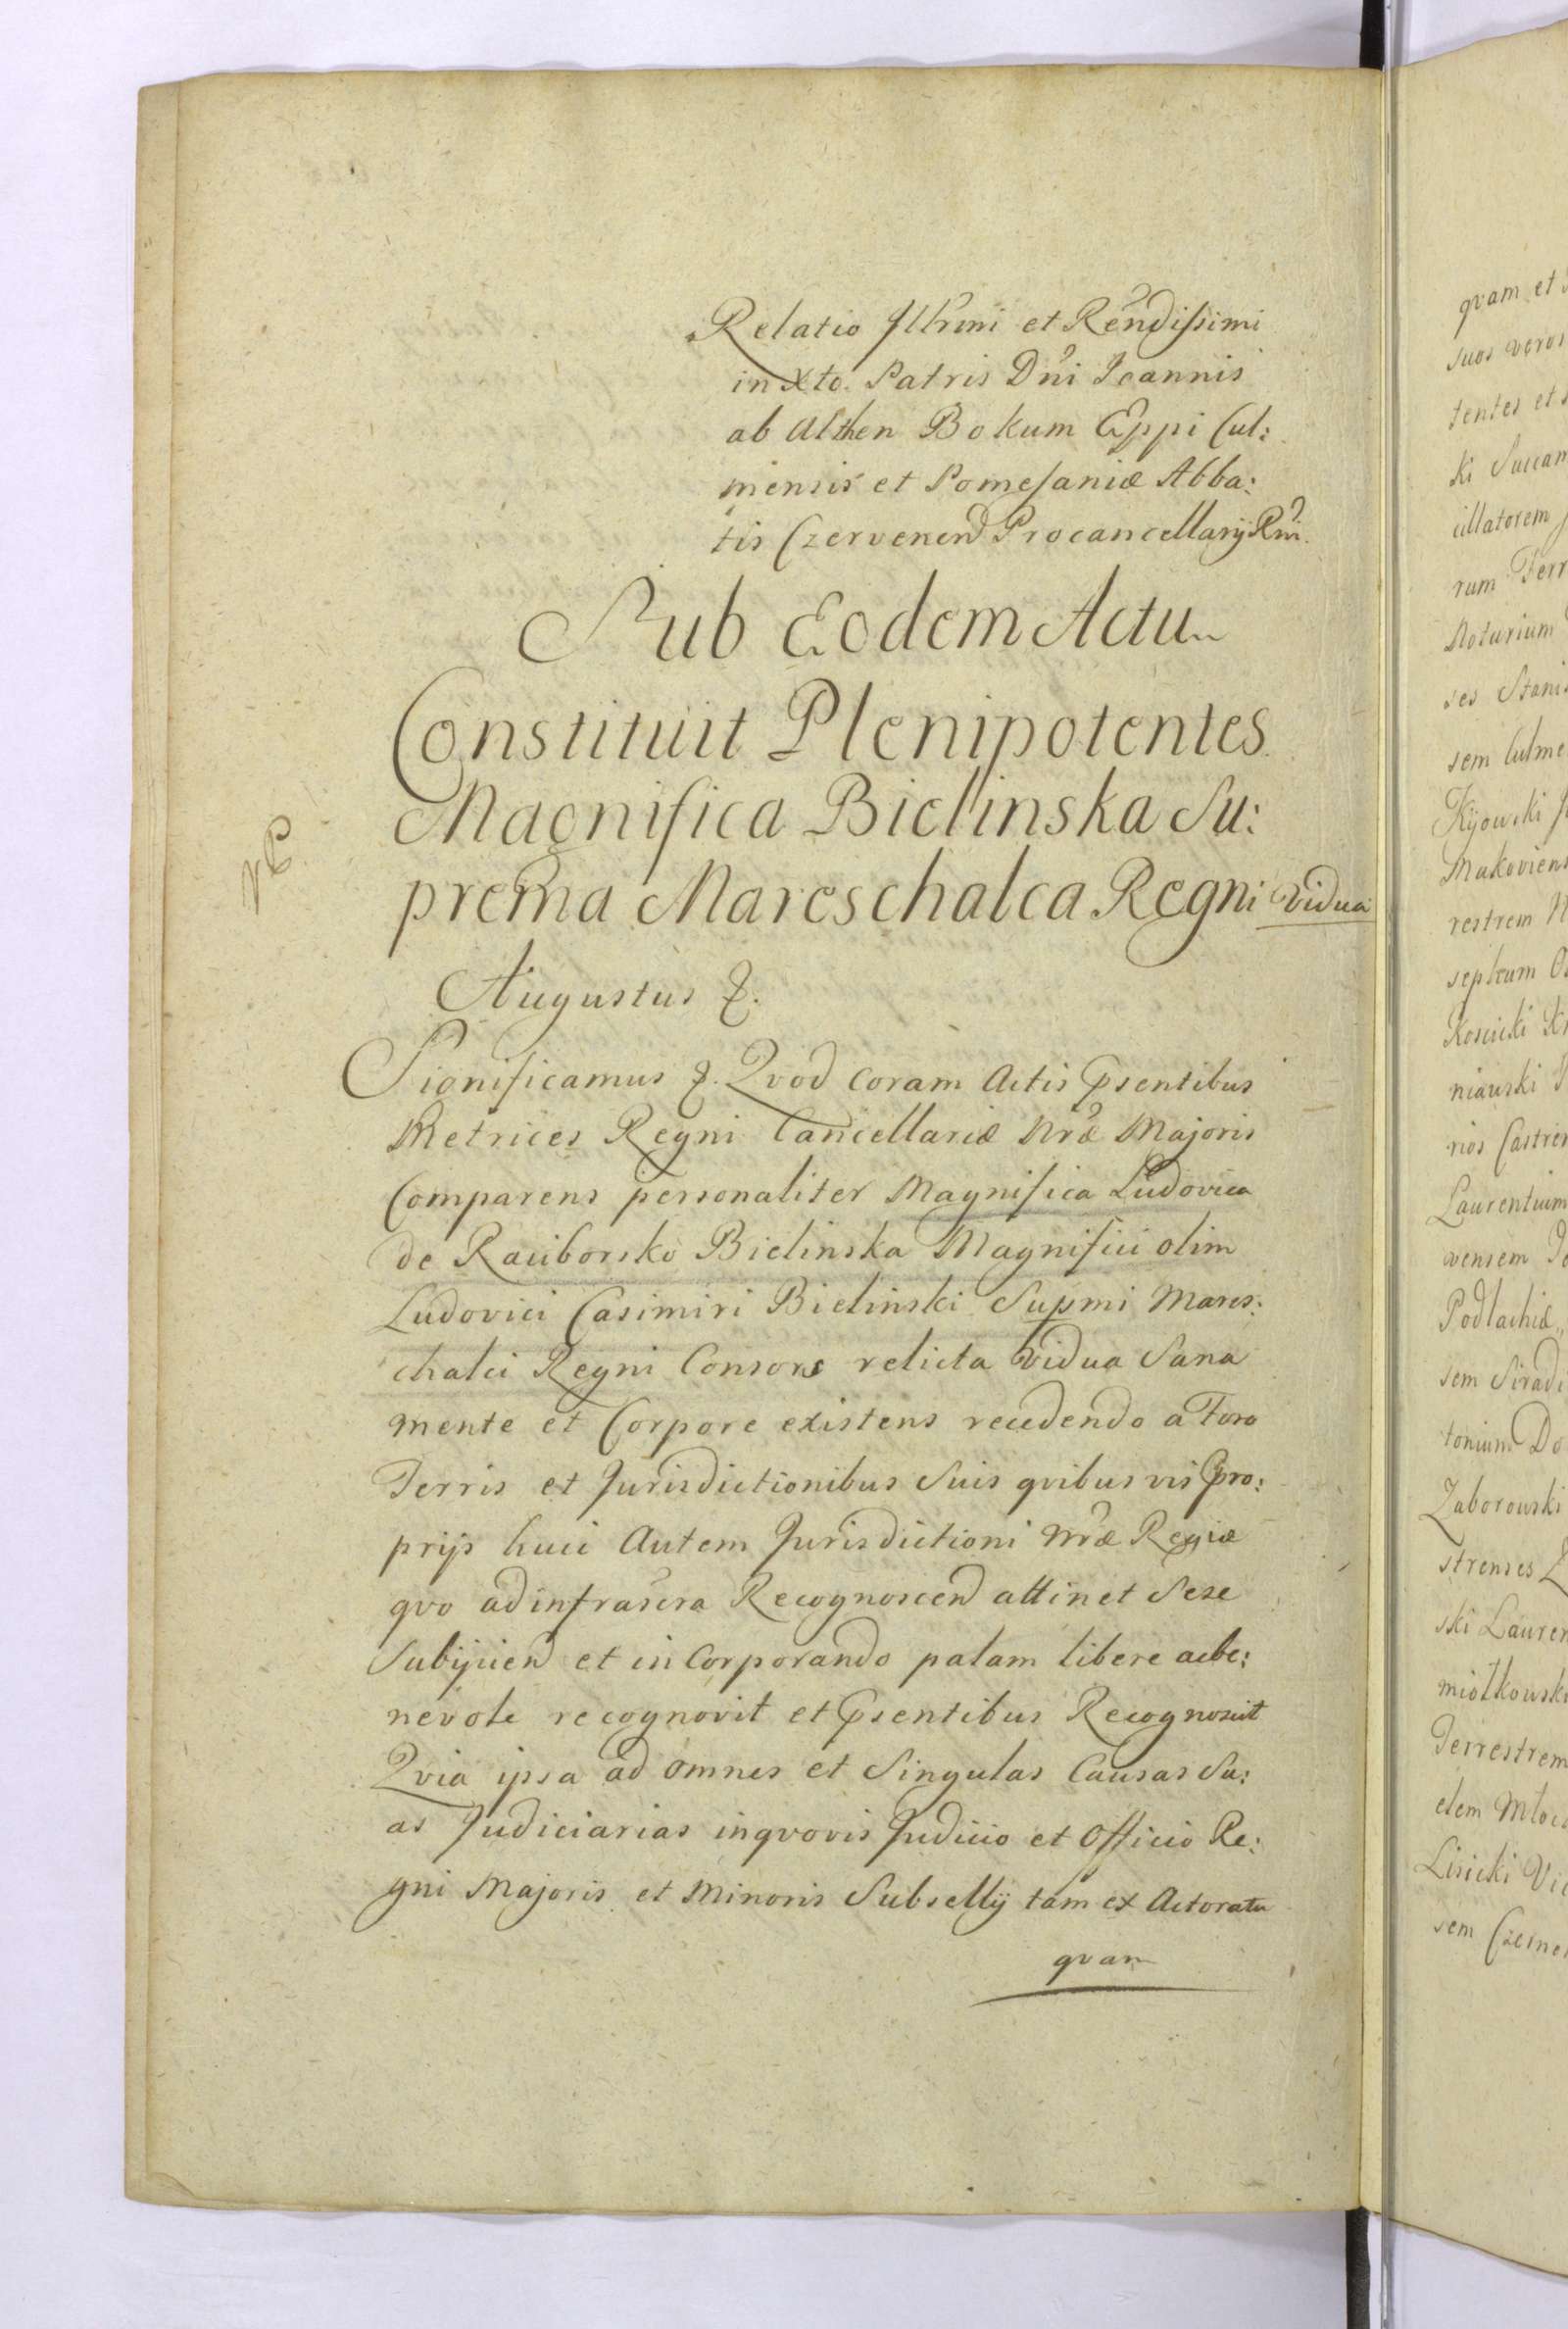 Relatio Illr̃mi et Rẽndissimi
in Xto. Patris Dñi Joannis
ab Althen Bokum Eppi Cul:
mensis et Pomesaniæ Abba:
tis Czervenen Procancellarij Rñi.
Sub Eodem Actu
Constituit Plenipotentes
Magnifica Bielinska Su:
prema Mareschalca Regni Vidua
Augustus &.
Significamus &. Qvod coram Actis Psentibus
Metrices Regni Cancellariæ Nræ Majoris
Comparens personaliter Magnifica Ludovica
de Raciborsko Bielinska Magnifici olim
Ludovici Casimiri Bielinski Supmi Mares:
chalci Regni Consors relicta Vidua Sana
mente et Corpore existens recedendo a Foro
Terris et Jurisdictionibus Suis qvibus vis Pro:
prijs huic Autem Jurisdictioni Nræ Regiæ
qvo ad infrascra Recognoscen attinet Sese
Subijcien et in Corporando palam libere acbe:
nevole recognovit et Psentibus Recognoscit
Qvia ipsa ad omnes et Singulas Causas Su:
as Judiciarias inqvovis Judicio et Officio Re:
gni Majoris et Minoris Subsellij tam ex Actoratu
qvam
qvam et
suos veros
tentes et
ki Succam
cillatorem
rum Terr
Notarium
ses Stanis
sem Culme
Kijowski
Makoviens
restrem N
sephum
Koscicki
niawski
rios Castren
Laurentium
vensem
Podlachiæ
sem Siradi
tonium Do
Zaborowski
strenses
ski Lauren
miotkowski
Terrestrem
elem Mloc
Lisicki Vic
sem Czerne